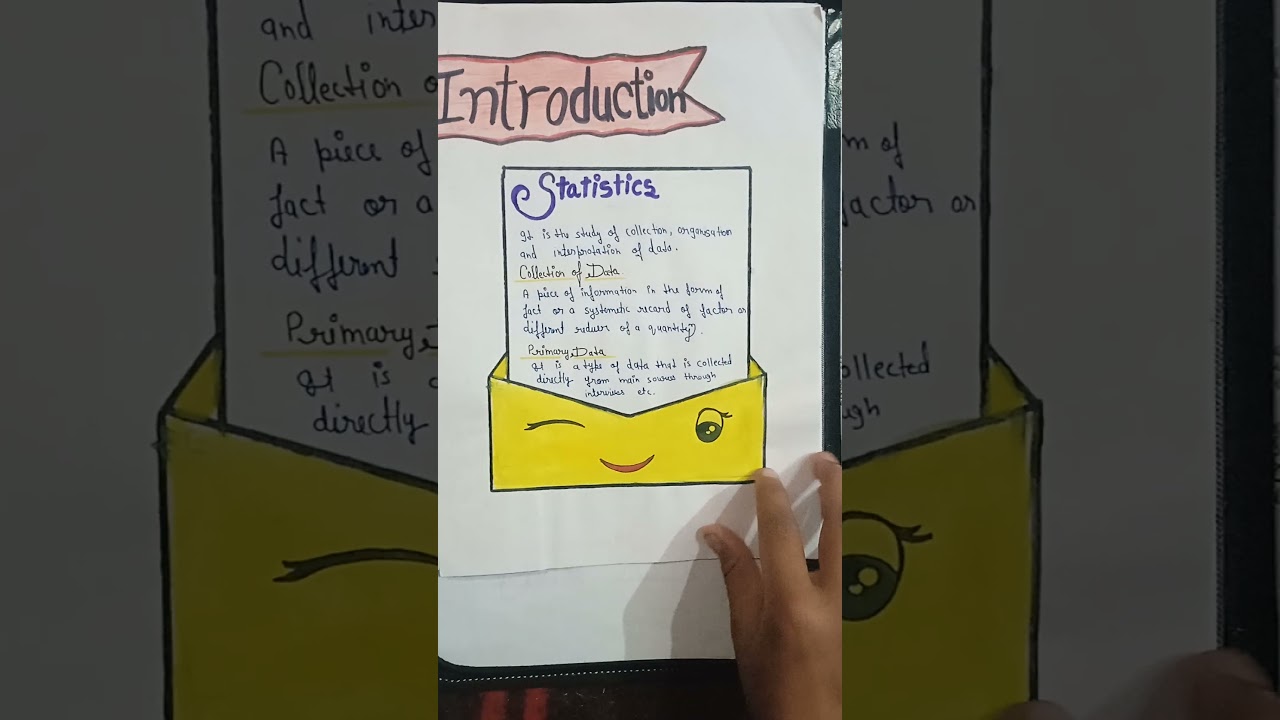 Introduction
Statistics
It is the study of collection, organisation
and interprotation of data.
Collection of Data
A piece of information in the form of
fact or a systemetic record of factor or
different of a quantity.
Primary Data
It is a type of data that is collected
directly from main sources through
interviews etc.